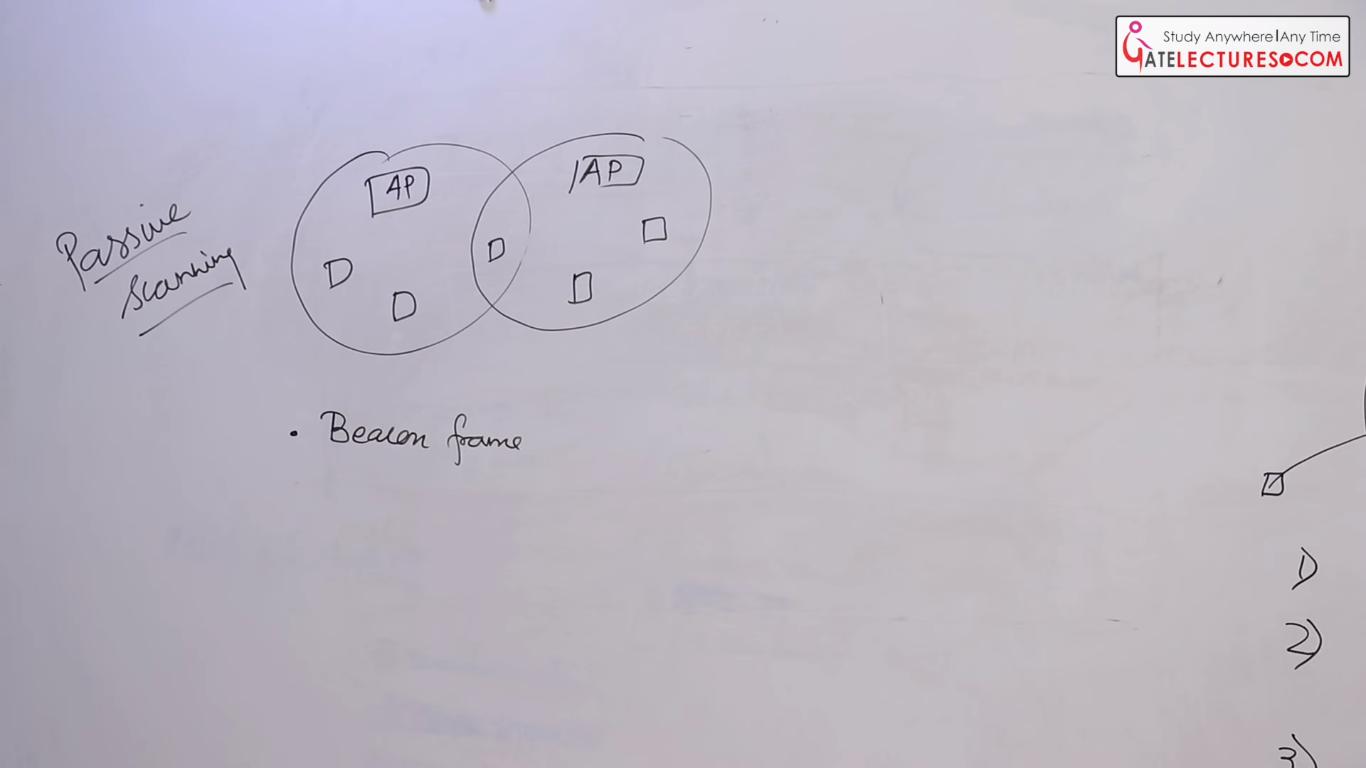 Study Anywhere|Any Time
GATELECTURES.COM
AP
AP
Passive
scanning
• Beacon frame
1)
2)
3)